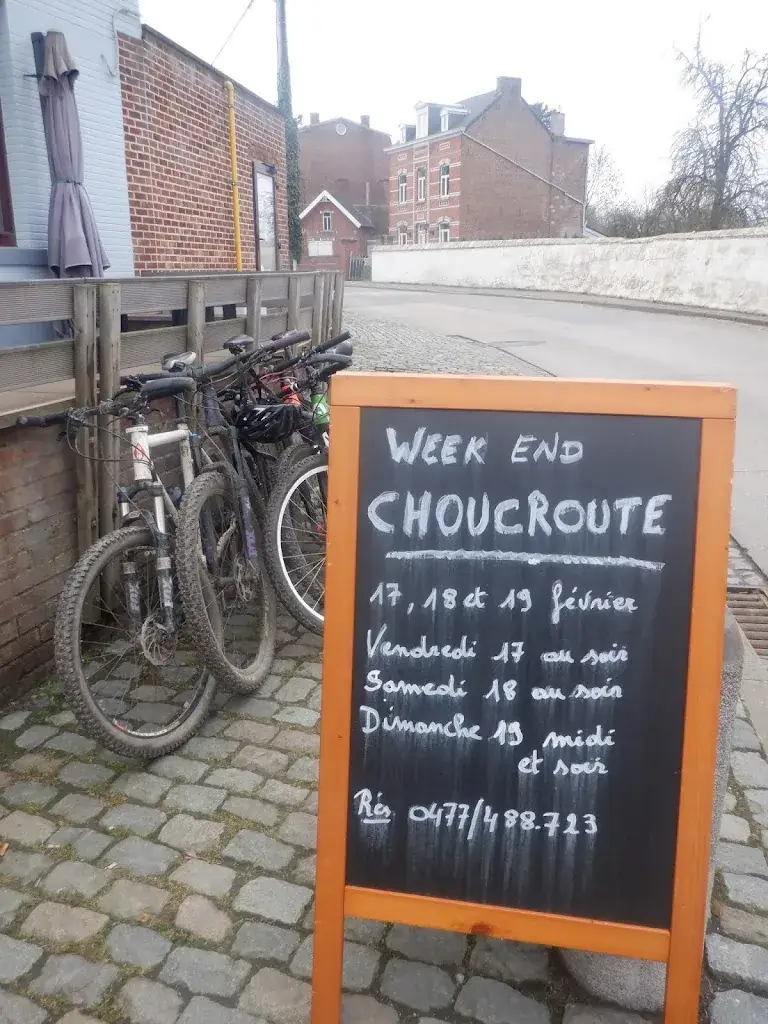 WEEK END
CHOUCROUTE
17, 18 et 19 février
Vendredi 17 au soir
Samedi 18 au soir
Dimanche 19 midi
et soir
Rés 0477/488.723